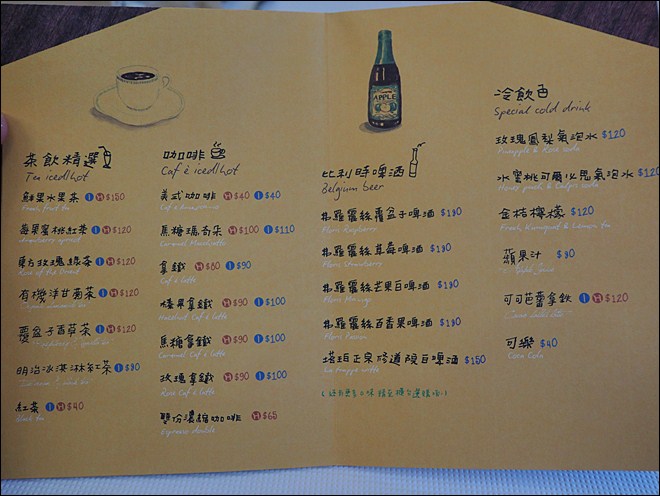 茶飲精選
Tea iced/hot
鮮果水果茶 I H $150
Fresh fruit tea
蘋果蜜桃紅茶 I H $120
東方玫瑰綠茶 I H $120
Rose of the Orient
有機洋甘菊茶 I H $120
覆盆子百草茶 I H $120
明治冰淇淋紅茶 I $90
紅茶 I H $40
Black tea
咖啡
Café iced/hot
美式咖啡 H $40 I $40
Café Americano
焦糖瑪奇朵 H $100 I $110
Caramel Macchiato
拿鐵 H $80 I $90
Café latte
榛果拿鐵 H $90 I $100
Hazelnut Café latte
焦糖拿鐵 H $90 I $100
Caramel Café latte
玫瑰拿鐵 H $90 I $100
Rose Café latte
雙份濃縮咖啡 H $65
Espresso double
APPLE
比利時啤酒
Belgium beer
弗羅麗絲覆盆子啤酒 $190
Floris Raspberry
弗羅麗絲草莓啤酒 $190
Floris Strawberry
弗羅麗絲芒果白啤酒 $190
Floris Mango
弗羅麗絲百香果啤酒 $190
Floris Passion
塔珀正泉修道院白啤酒 $150
La trappe witte
冷飲
Special cold drink
玫瑰鳳梨氣泡水 $120
Pineapple & Rose soda
水蜜桃可爾必思氣泡水 $120
Honey peach & Calpis soda
金桔檸檬 $120
Fresh Kumquat & Lemon tea
蘋果汁 $90
Apple Juice
可可芭蕾拿鐵 I H $120
可樂 $40
Coca Cola